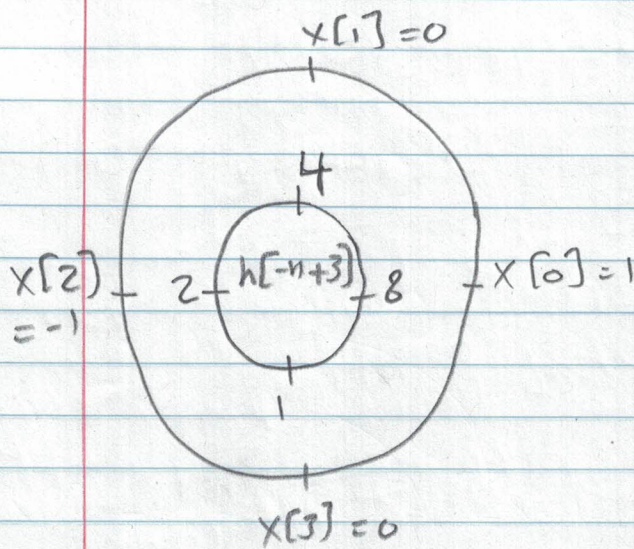 x[1] = 0
4
x[2]
= -1
2
h[-n+3]
8
x[0] = 1
1
x[3] = 0